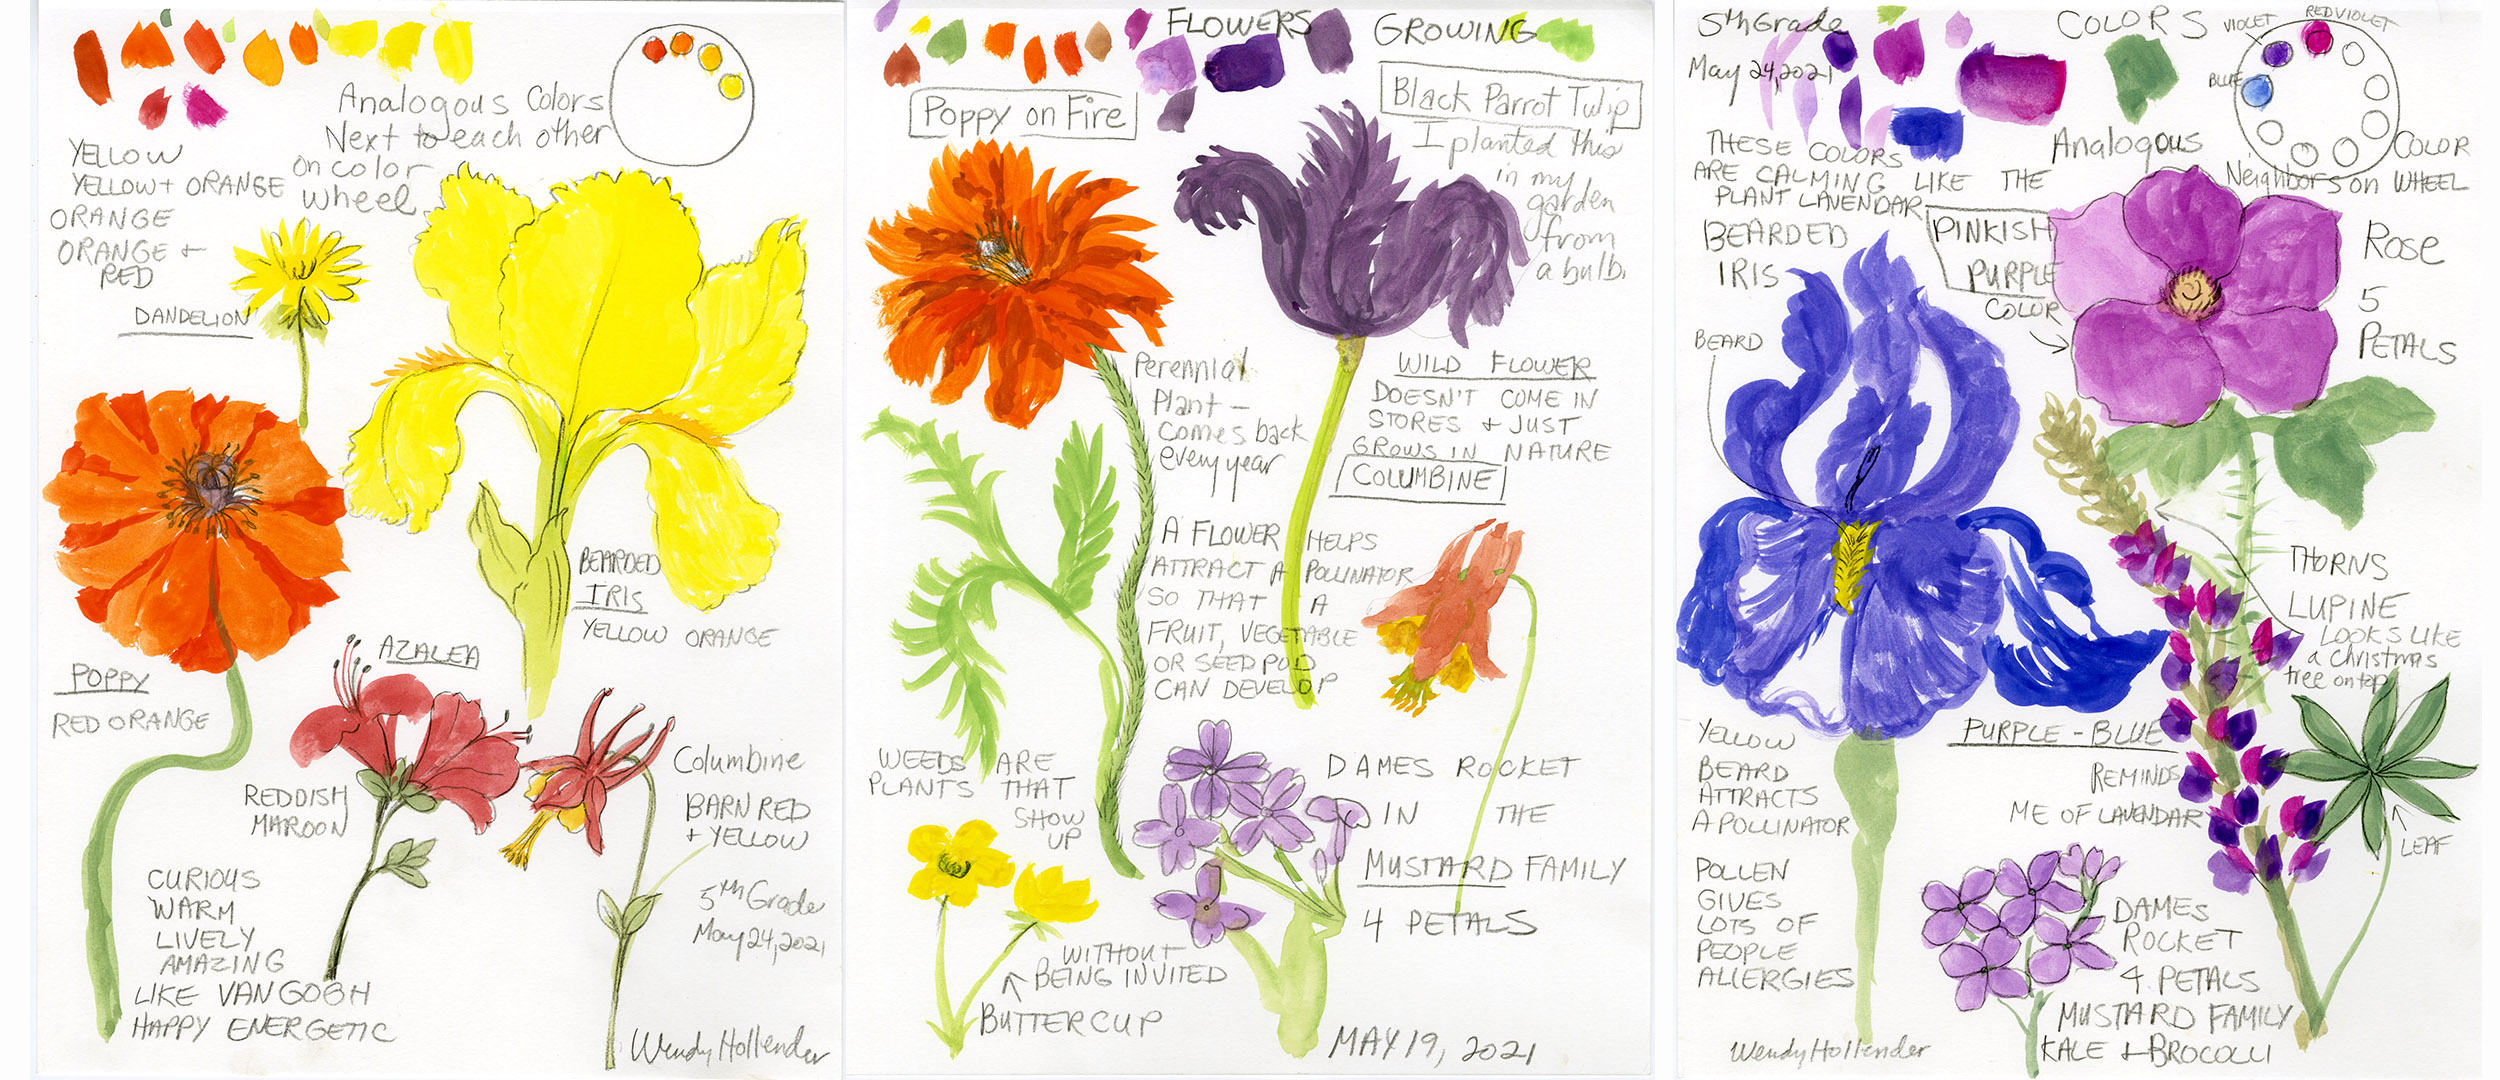 Analogous Colors
Next to each other
on color
wheel
YELLOW
YELLOW + ORANGE
ORANGE
ORANGE +
RED
DANDELION
BEARDED
IRIS
YELLOW ORANGE
POPPY
RED ORANGE
AZALEA
REDDISH
MAROON
Columbine
BARN RED
+ YELLOW
5th Grade
May 24, 2021
CURIOUS
WARM
LIVELY
AMAZING
LIKE VAN GOGH
HAPPY ENERGETIC
Wendy Hollender
FLOWERS GROWING
Poppy on Fire
Black Parrot Tulip
I planted this
in my
garden
from
a bulb.
Perennial
Plant -
comes back
every year
WILD FLOWER
DOESN'T COME IN
STORES + JUST
GROWS IN NATURE
COLUMBINE
A FLOWER HELPS
ATTRACT A POLLINATOR
SO THAT A
FRUIT, VEGETABLE
OR SEED POD
CAN DEVELOP
WEEDS ARE
PLANTS THAT
SHOW
UP
WITHOUT
BEING INVITED
BUTTERCUP
DAMES ROCKET
IN THE
MUSTARD FAMILY
4 PETALS
MAY 19, 2021
5th Grade
May 24, 2021
COLORS
VIOLET
RED VIOLET
BLUE
THESE COLORS
ARE CALMING LIKE THE
PLANT LAVENDAR
Analogous COLOR
Neighbors on WHEEL
BEARDED
IRIS
PINKISH
PURPLE
COLOR
Rose
5
PETALS
BEARD
THORNS
LUPINE
LOOKS LIKE
a Christmas
tree on top
YELLOW
BEARD
ATTRACTS
A POLLINATOR
PURPLE - BLUE
REMINDS
ME OF LAVENDAR
LEAF
POLLEN
GIVES
LOTS OF
PEOPLE
ALLERGIES
DAMES
ROCKET
4 PETALS
MUSTARD FAMILY
KALE + BROCOLLI
Wendy Hollender